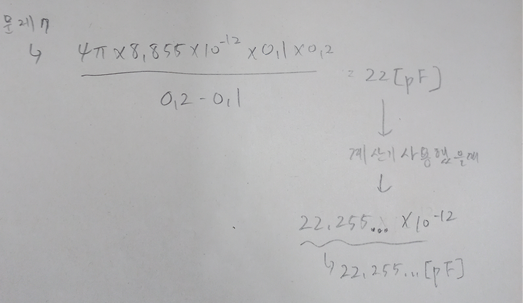 문제7
↳ 4π×8,855×10⁻¹²×0,1×0,2
0,2-0,1
= 22[pF]
↓
계산기 사용했을때
↓
22,255... ×10⁻¹²
↳ 22,255...[pF]